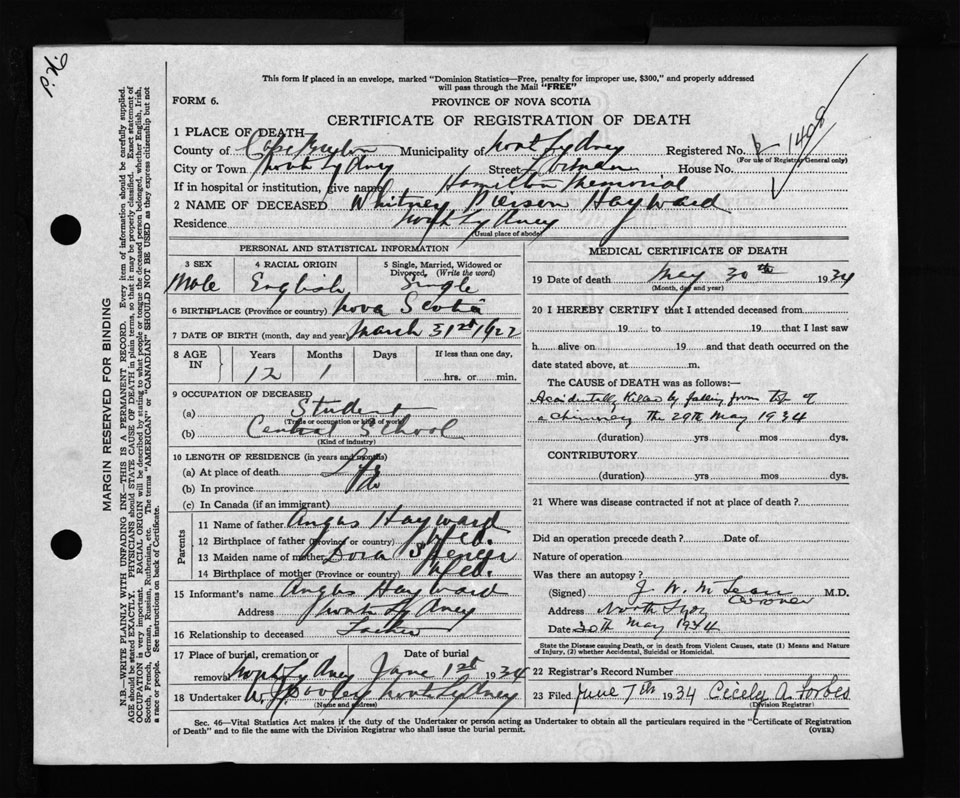 O.K.
This form if placed in an envelope, marked "Dominion Statistics—Free, penalty for improper use, $300," and properly addressed
will pass through the Mail "FREE"
FORM 6.
PROVINCE OF NOVA SCOTIA
CERTIFICATE OF REGISTRATION OF DEATH
1 PLACE OF DEATH
County of Cape Breton Municipality of North Sydney Registered No. 1408
(For use of Registrar General only)
City or Town North Sydney Street House No.
If in hospital or institution, give name Hamilton Memorial
2 NAME OF DECEASED Whitney Pierson Hayward
Residence North Sydney
(Usual place of abode)
PERSONAL AND STATISTICAL INFORMATION
3 SEX Male
4 RACIAL ORIGIN English
5 Single, Married, Widowed or Divorced, (Write the word) Single
6 BIRTHPLACE (Province or country) Nova Scotia
7 DATE OF BIRTH (month, day and year) March 31st 1922
8 AGE IN Years Months Days If less than one day,
12 1 hrs. or min.
9 OCCUPATION OF DECEASED
(a) Student
(Trade or occupation or kind of work)
(b) Central School
(Kind of industry)
10 LENGTH OF RESIDENCE (in years and months)
(a) At place of death Life
(b) In province do
(c) In Canada (if an immigrant)
Parents
11 Name of father Angus Hayward
12 Birthplace of father (Province or country) Nfld.
13 Maiden name of mother Dora
14 Birthplace of mother (Province or country) Nfld.
15 Informant's name Angus Hayward
Address North Sydney
16 Relationship to deceased Father
17 Place of burial, cremation or removal North Sydney
Date of burial June 1st 1934
18 Undertaker North Sydney
(Name and address)
MEDICAL CERTIFICATE OF DEATH
19 Date of death May 30th 1934
(Month, day and year)
20 I HEREBY CERTIFY that I attended deceased from
19 to 19 that I last saw
h alive on 19 and that death occurred on the
date stated above, at m.
The CAUSE of DEATH was as follows:—
Accidentally Killed by falling from top of
a chimney the 29th May 1934
(duration) yrs mos dys.
CONTRIBUTORY
(duration) yrs mos dys.
21 Where was disease contracted if not at place of death?
Did an operation precede death? Date of
Nature of operation
Was there an autopsy?
(Signed) J. W. McLean M.D.
Coroner
Address North Sydney
Date 30th May 1934
State the Disease causing Death, or in death from Violent Causes, state (1) Means and Nature
of Injury, (2) whether Accidental, Suicidal or Homicidal.
22 Registrar's Record Number
23 Filed June 7th 1934 Cicely A. Forbes
(Division Registrar)
Sec. 46—Vital Statistics Act makes it the duty of the Undertaker or person acting as Undertaker to obtain all the particulars required in the "Certificate of Registration
of Death" and to file the same with the Division Registrar who shall issue the burial permit.
(OVER)
MARGIN RESERVED FOR BINDING
N.B.—WRITE PLAINLY WITH UNFADING INK—THIS IS A PERMANENT RECORD. Every item of information should be carefully supplied.
AGE should be stated EXACTLY. PHYSICIANS should STATE CAUSE OF DEATH in plain terms, so that it may be properly classified. Exact statement of
OCCUPATION is very important. RACIAL ORIGIN will be described by stating to what people or tongue the deceased person belonged, whether English, Irish,
Scotch, French, German, Russian, Ruthenian, etc. The terms "AMERICAN" or "CANADIAN" SHOULD NOT BE USED as they express citizenship but not
a race or people. See instructions on back of Certificate.